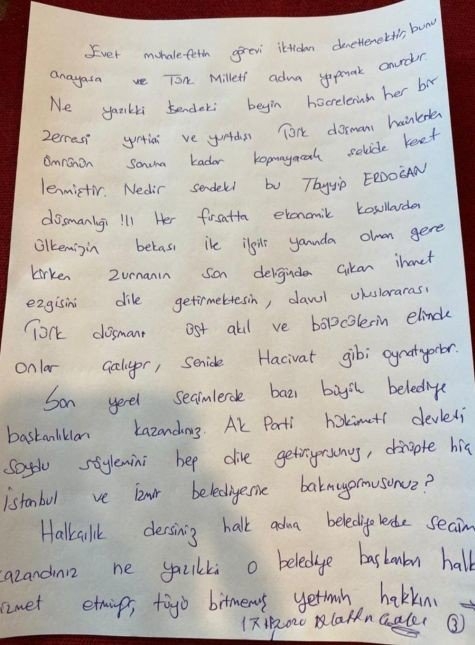 Evet muhalefetin görevi iktidarı denetlemektir, bunu
anayasa ve Türk Milleti adına yapmak onurdur.
Ne yazıkki sendeki beyin hücrelerinin her bir
zerresi yurtiçi ve yurtdışı Türk düşmanı hainlerden
ömrünün sonuna kadar kopmayacak şekilde keret
lenmiştir. Nedir sendeki bu Tayyip ERDOĞAN
düşmanlığı !!! Her fırsatta ekonomik koşullarda
ülkemizin bekası ile ilgili yanında olman gere
kirken zurnanın son deliğinden çıkan ihanet
ezgisini dile getirmektesin, davul uluslararası
Türk düşmanı üst akıl ve bölücülerin elinde
onlar çalıyor, senide Hacivat gibi oynatıyorlar.
Son yerel seçimlerde bazı büyük belediye
başkanlıkları kazandınız. AK Parti hükümeti devleti
soydu söylemini hep dile getiriyorsunuz, dönüpte hiç
İstanbul ve İzmir belediyesine bakmıyormusunuz?
Halkçılık dersiniz halk adına belediyelerde seçim
kazandınız ne yazıkki o belediye başkanları halk
hizmet etmemiş, tüyü bitmemiş yetimin hakkını
③